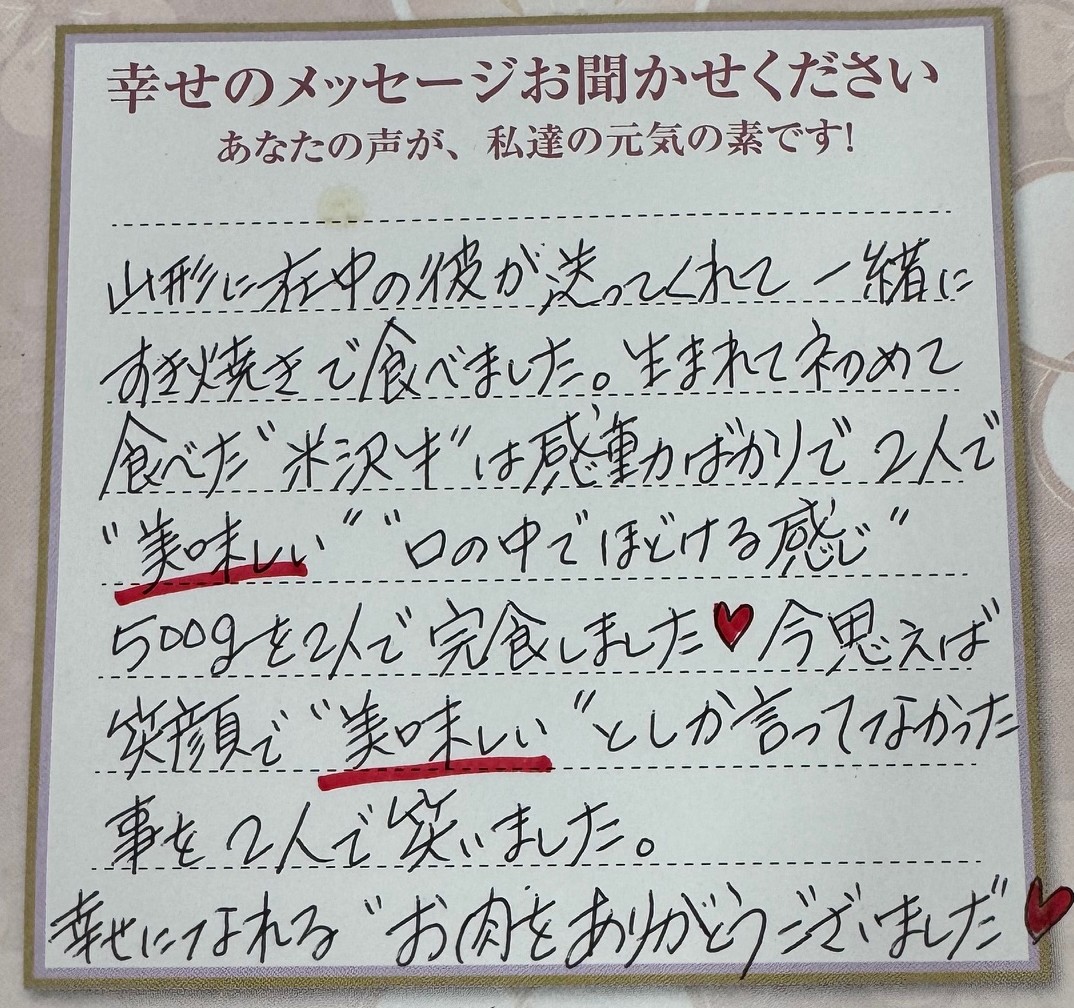 幸せのメッセージお聞かせください
あなたの声が、私達の元気の素です!
山形に在中の彼が送ってくれて一緒に
すき焼きで食べました。生まれて初めて
食べた"米沢牛"は感動ばかりで2人で
"美味しい" "口の中でほどける感じ"
500gを2人で完食しました♥今思えば
笑顔で"美味しい"としか言ってなかった
事を2人で笑いました。
幸せになれる"お肉をありがとうございました"♥